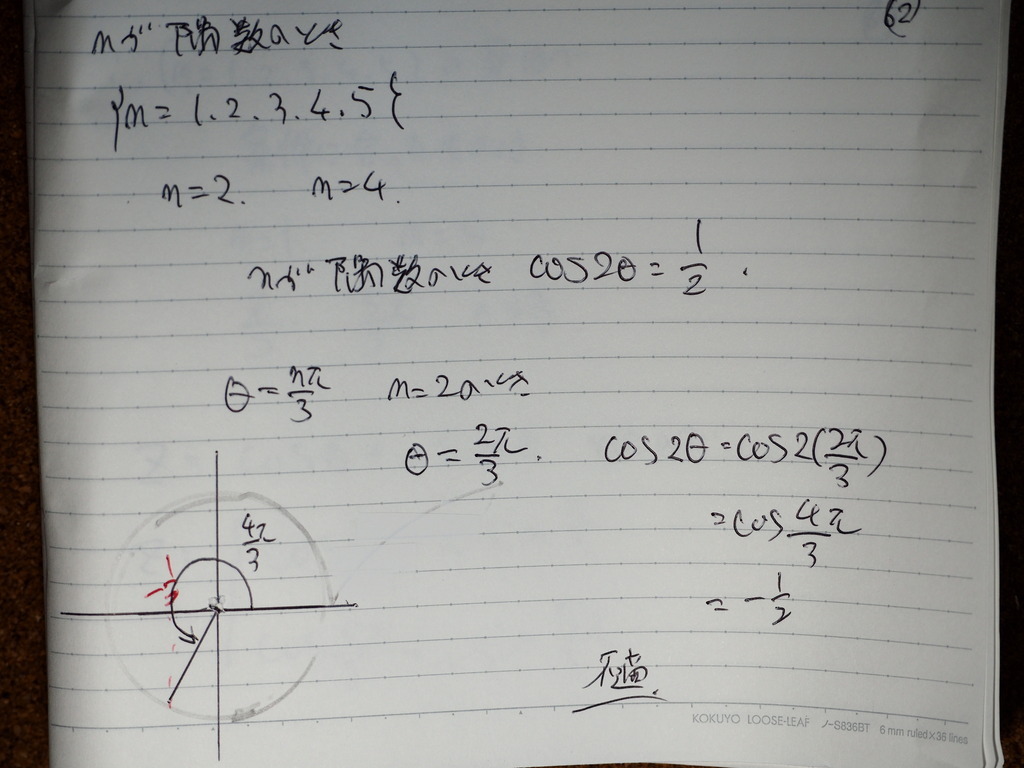 (62)
nが偶数のとき
{n = 1. 2. 3. 4. 5}
n = 2. n = 4.
nが偶数のとき cos2θ = 1/2 .
θ = nπ/3 n = 2のとき
θ = 2π/3. cos2θ = cos2(2π/3)
= cos 4π/3
4π/3
= -1/2
不適.
KOKUYO LOOSE-LEAF ノ-S836BT 6 mm ruled×36 lines